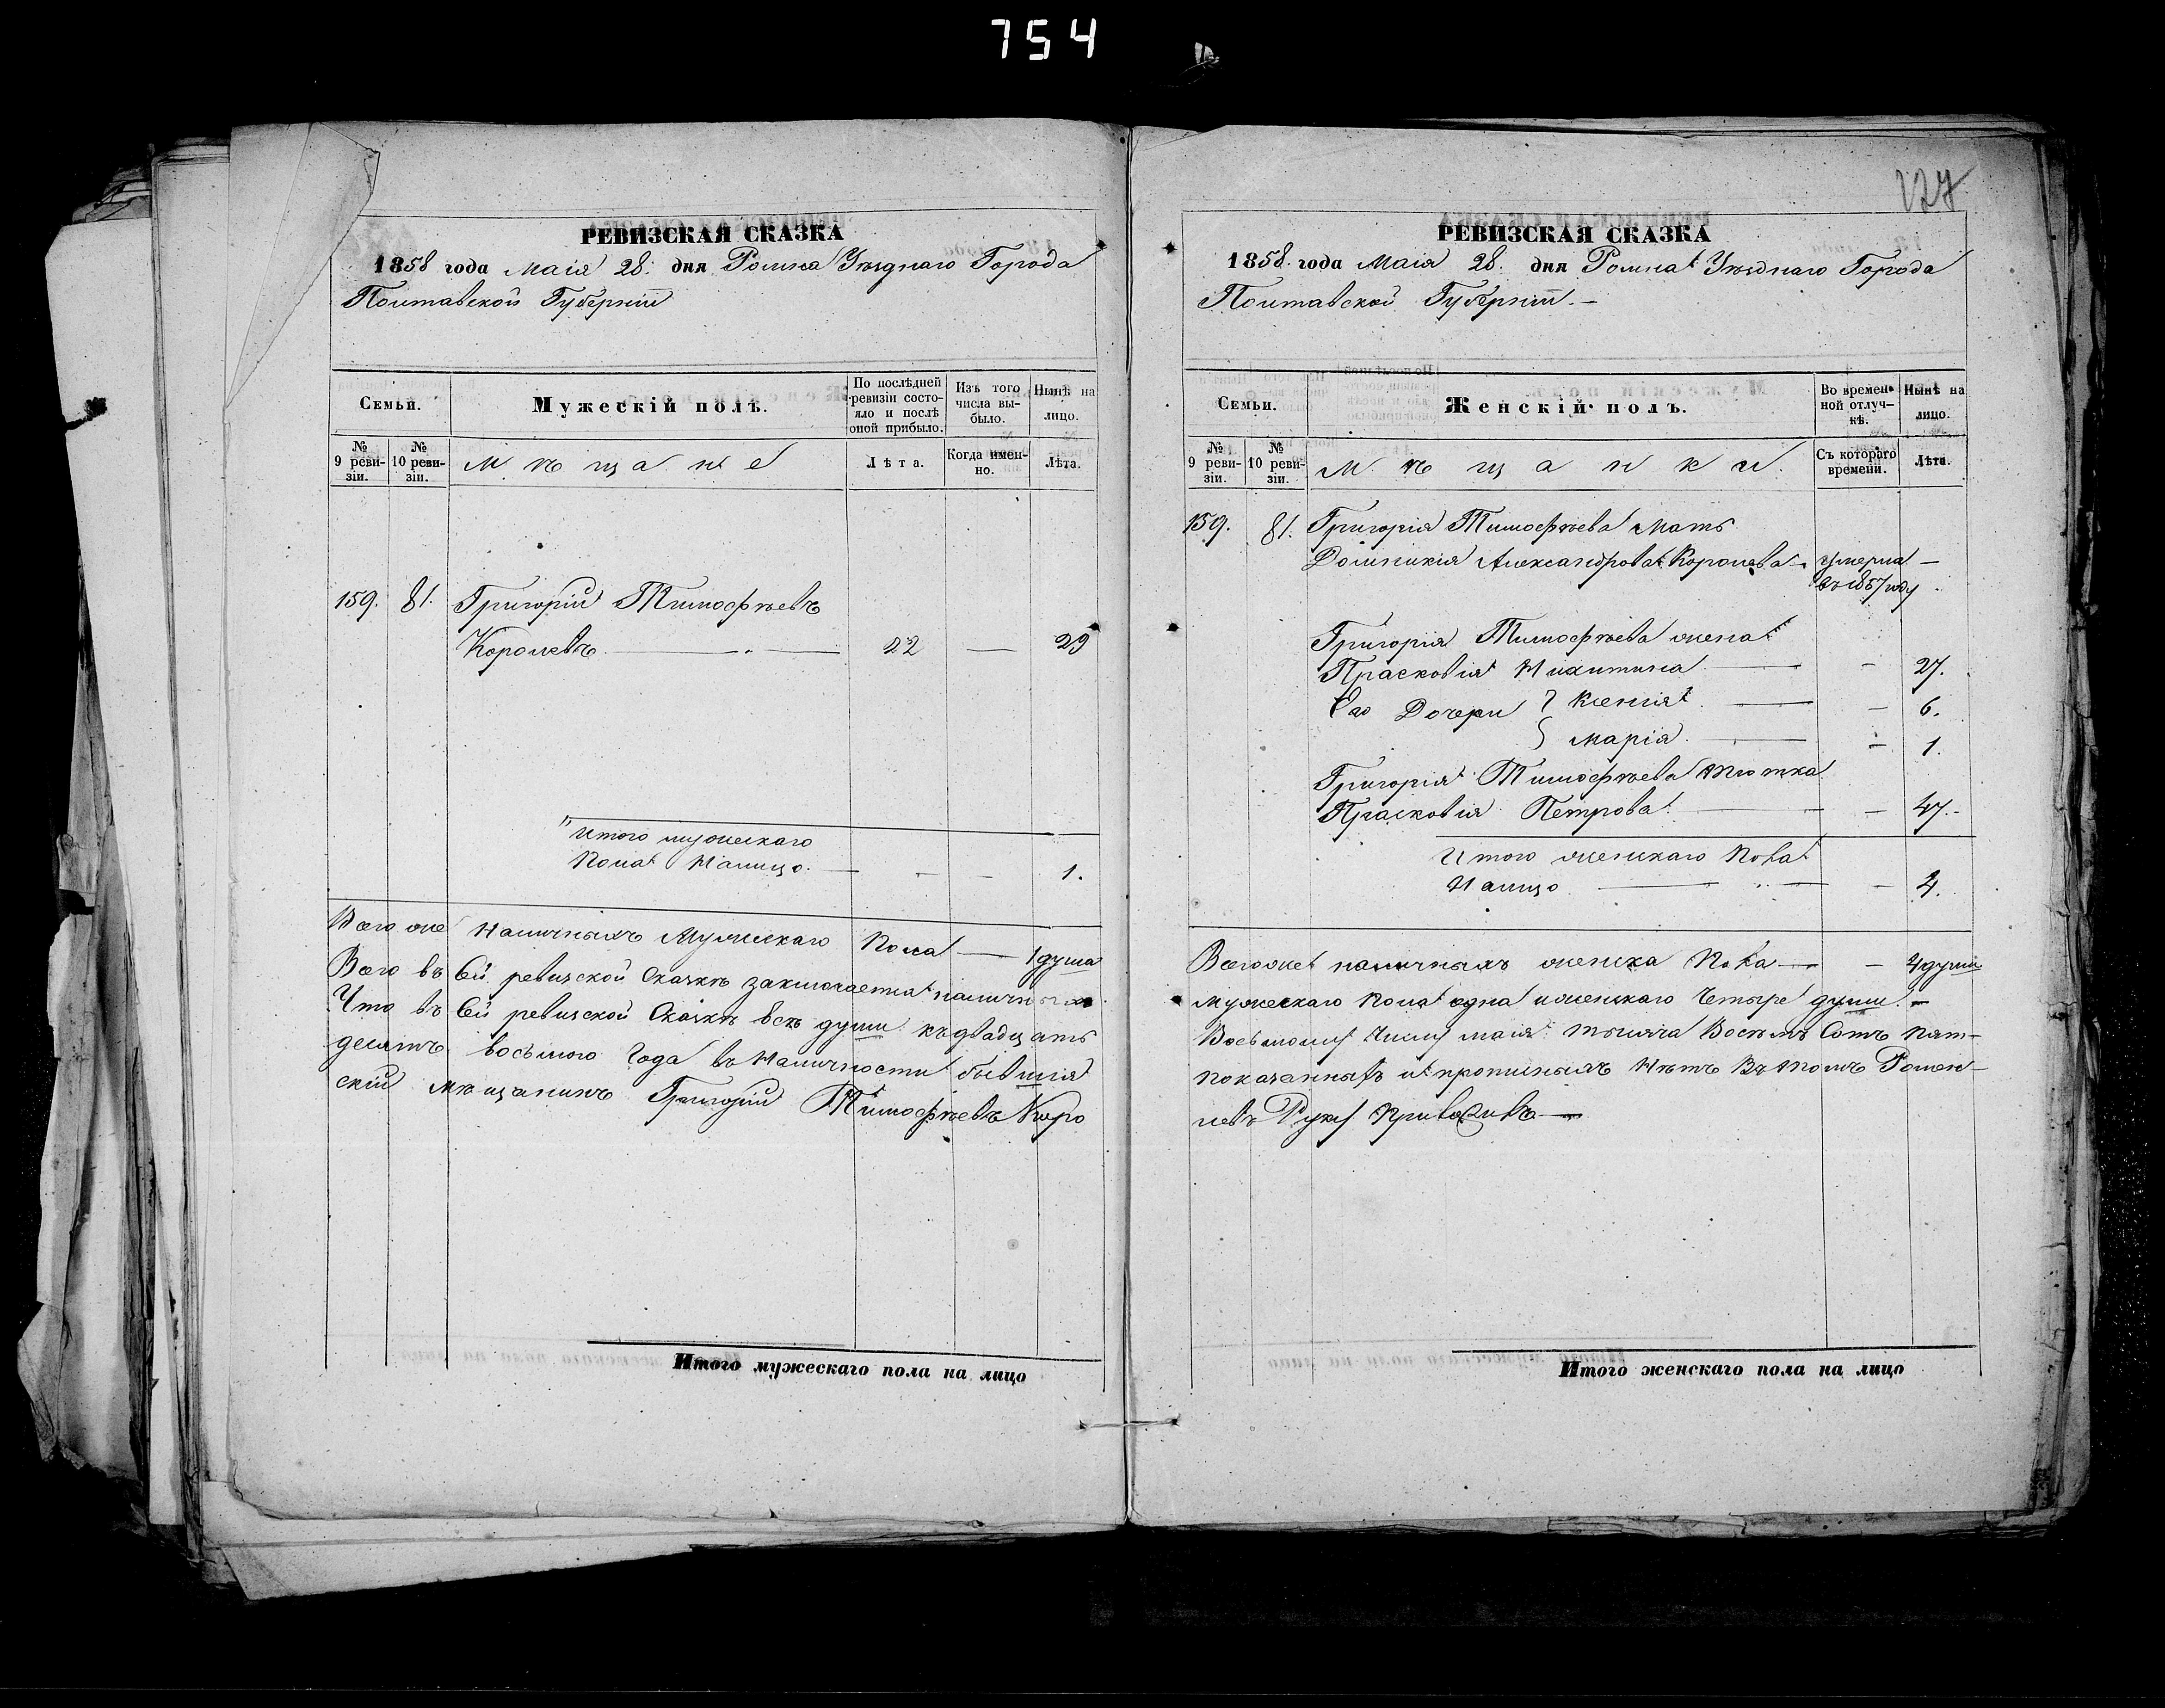 754
127
РЕВИЗСКАЯ СКАЗКА
1858 года Маія 28. дня Ромна Уѣзднаго Города
Полтавской Губерніи
Семьи.
Мужескій полъ.
По послѣдней ревизіи состояло и послѣ оной прибыло.
Изъ того числа выбыло.
Нынѣ на лицо.
№ 9 ревизіи.
№ 10 ревизіи.
Мѣщане
Лѣта.
Когда именно.
Лѣта.
159. 81. Григорій Тимофѣевъ
Королевъ 22 — 29
Итого мужескаго
Пола Налицо. — — — 1.
Всего же Наличныхъ Мужескаго Пола — 1 душа
Всего въ сй ревизской Сказкѣ заключается наличныхъ
Что въ сй ревизской Сказкѣ всѣ души къ двадцать
десятъ восьмого Года въ Наличности бывшія
скій мѣщанинъ Григорій Тимофѣевъ Коро
Итого мужескаго пола на лицо
РЕВИЗСКАЯ СКАЗКА
1858. года Маія 28. дня Ромна Уѣзднаго Города
Полтавской Губерніи. —
Семьи.
Женскій полъ.
Во временной отлучкѣ.
Нынѣ на лицо.
№ 9 ревизіи.
№ 10 ревизіи.
Мѣщанки.
Съ котораго времени.
Лѣта.
159. 81. Григорія Тимофѣева Мать
Домникія Александрова Королева — умерла —
въ 1857 году
Григорія Тимофѣева жена
Прасковія Никитина — — 27.
Его Дочери } Ксенія — — 6.
} Марія — — 1.
Григорія Тимофѣева Тютка
Прасковія Петрова — — 47. -
Итого женскаго Пола
Налицо — — — 4.
Всего же наличныхъ женска Пола — — 4 души
мужескаго Пола одна и женскаго Четыре души. —
Восьмому Числу маія тысяча Восѣмъ Сотъ Пят-
показанныя и прописныхъ Нѣтъ Въ томъ Ромен-
левъ Руку
Итого женскаго пола на лицо